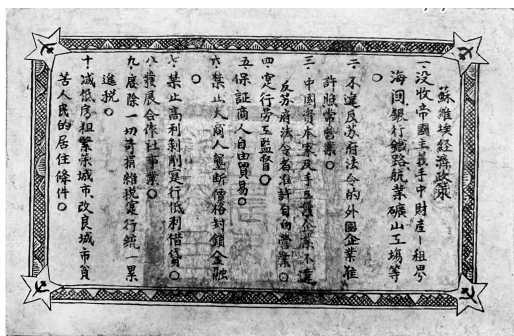 蘇維埃經濟政策
一.没收帝國主義手中財產—租界
海関銀行鐵路航業礦山工塲等
○
二.不違反苏府法令的外國企業准
許照常營業○
三.中國資本家及手工業企業不違
反苏府法令者准許自由營業○
四.实行劳工監督○
五.保証商人自由貿易○
六.禁止大商人壟断價格封鎖金融
○
七.禁止高利剥削实行低利借貸○
八.發展合作社事業○
九.廢除一切苛捐雜税实行統一累
進税○
十.减低房租繁荣城市改良城市貧
苦人民的居住條件○